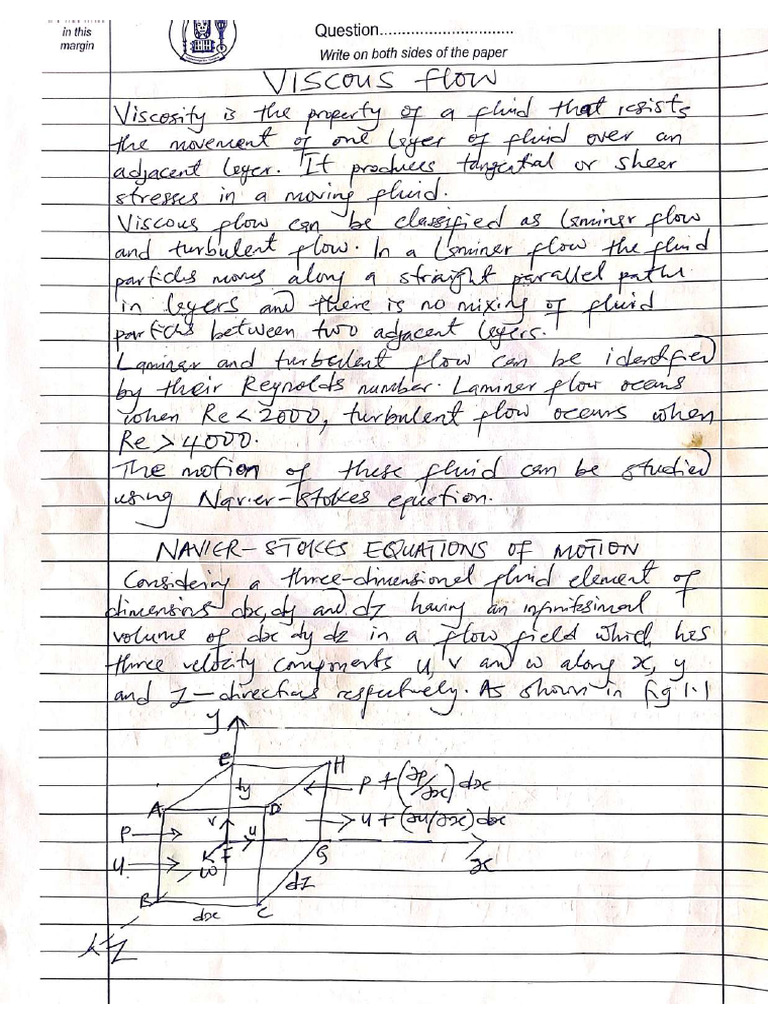 in this
margin
Question..............................
Write on both sides of the paper
VISCOUS FLOW
Viscosity is the property of a fluid that resists
the movement of one layer of fluid over an
adjacent layer. It produces tangential or shear
stresses in a moving fluid.
Viscous flow can be classified as Laminar flow
and turbulent flow. In a Laminar flow the fluid
particles moves along a straight parallel paths
in layers and there is no mixing of fluid
particles between two adjacent layers.
Laminar and turbulent flow can be identified
by their Reynolds number. Laminar flow occurs
when Re < 2000, turbulent flow occurs when
Re > 4000.
The motion of these fluid can be studied
using Navier-Stokes equation.
NAVIER-STOKES EQUATIONS OF MOTION
Considering a three-dimensional fluid element of
dimensions dx, dy and dz having an infinitesimal
volume of dx dy dz in a flow field which has
three velocity components u, v and w along x, y
and z-directions respectively. As shown in fig 1.1
y
E H
dy P + (∂P/∂x) dx
A D
P v u u + (∂u/∂x) dx
F G x
u w
dz
B C
dx
z